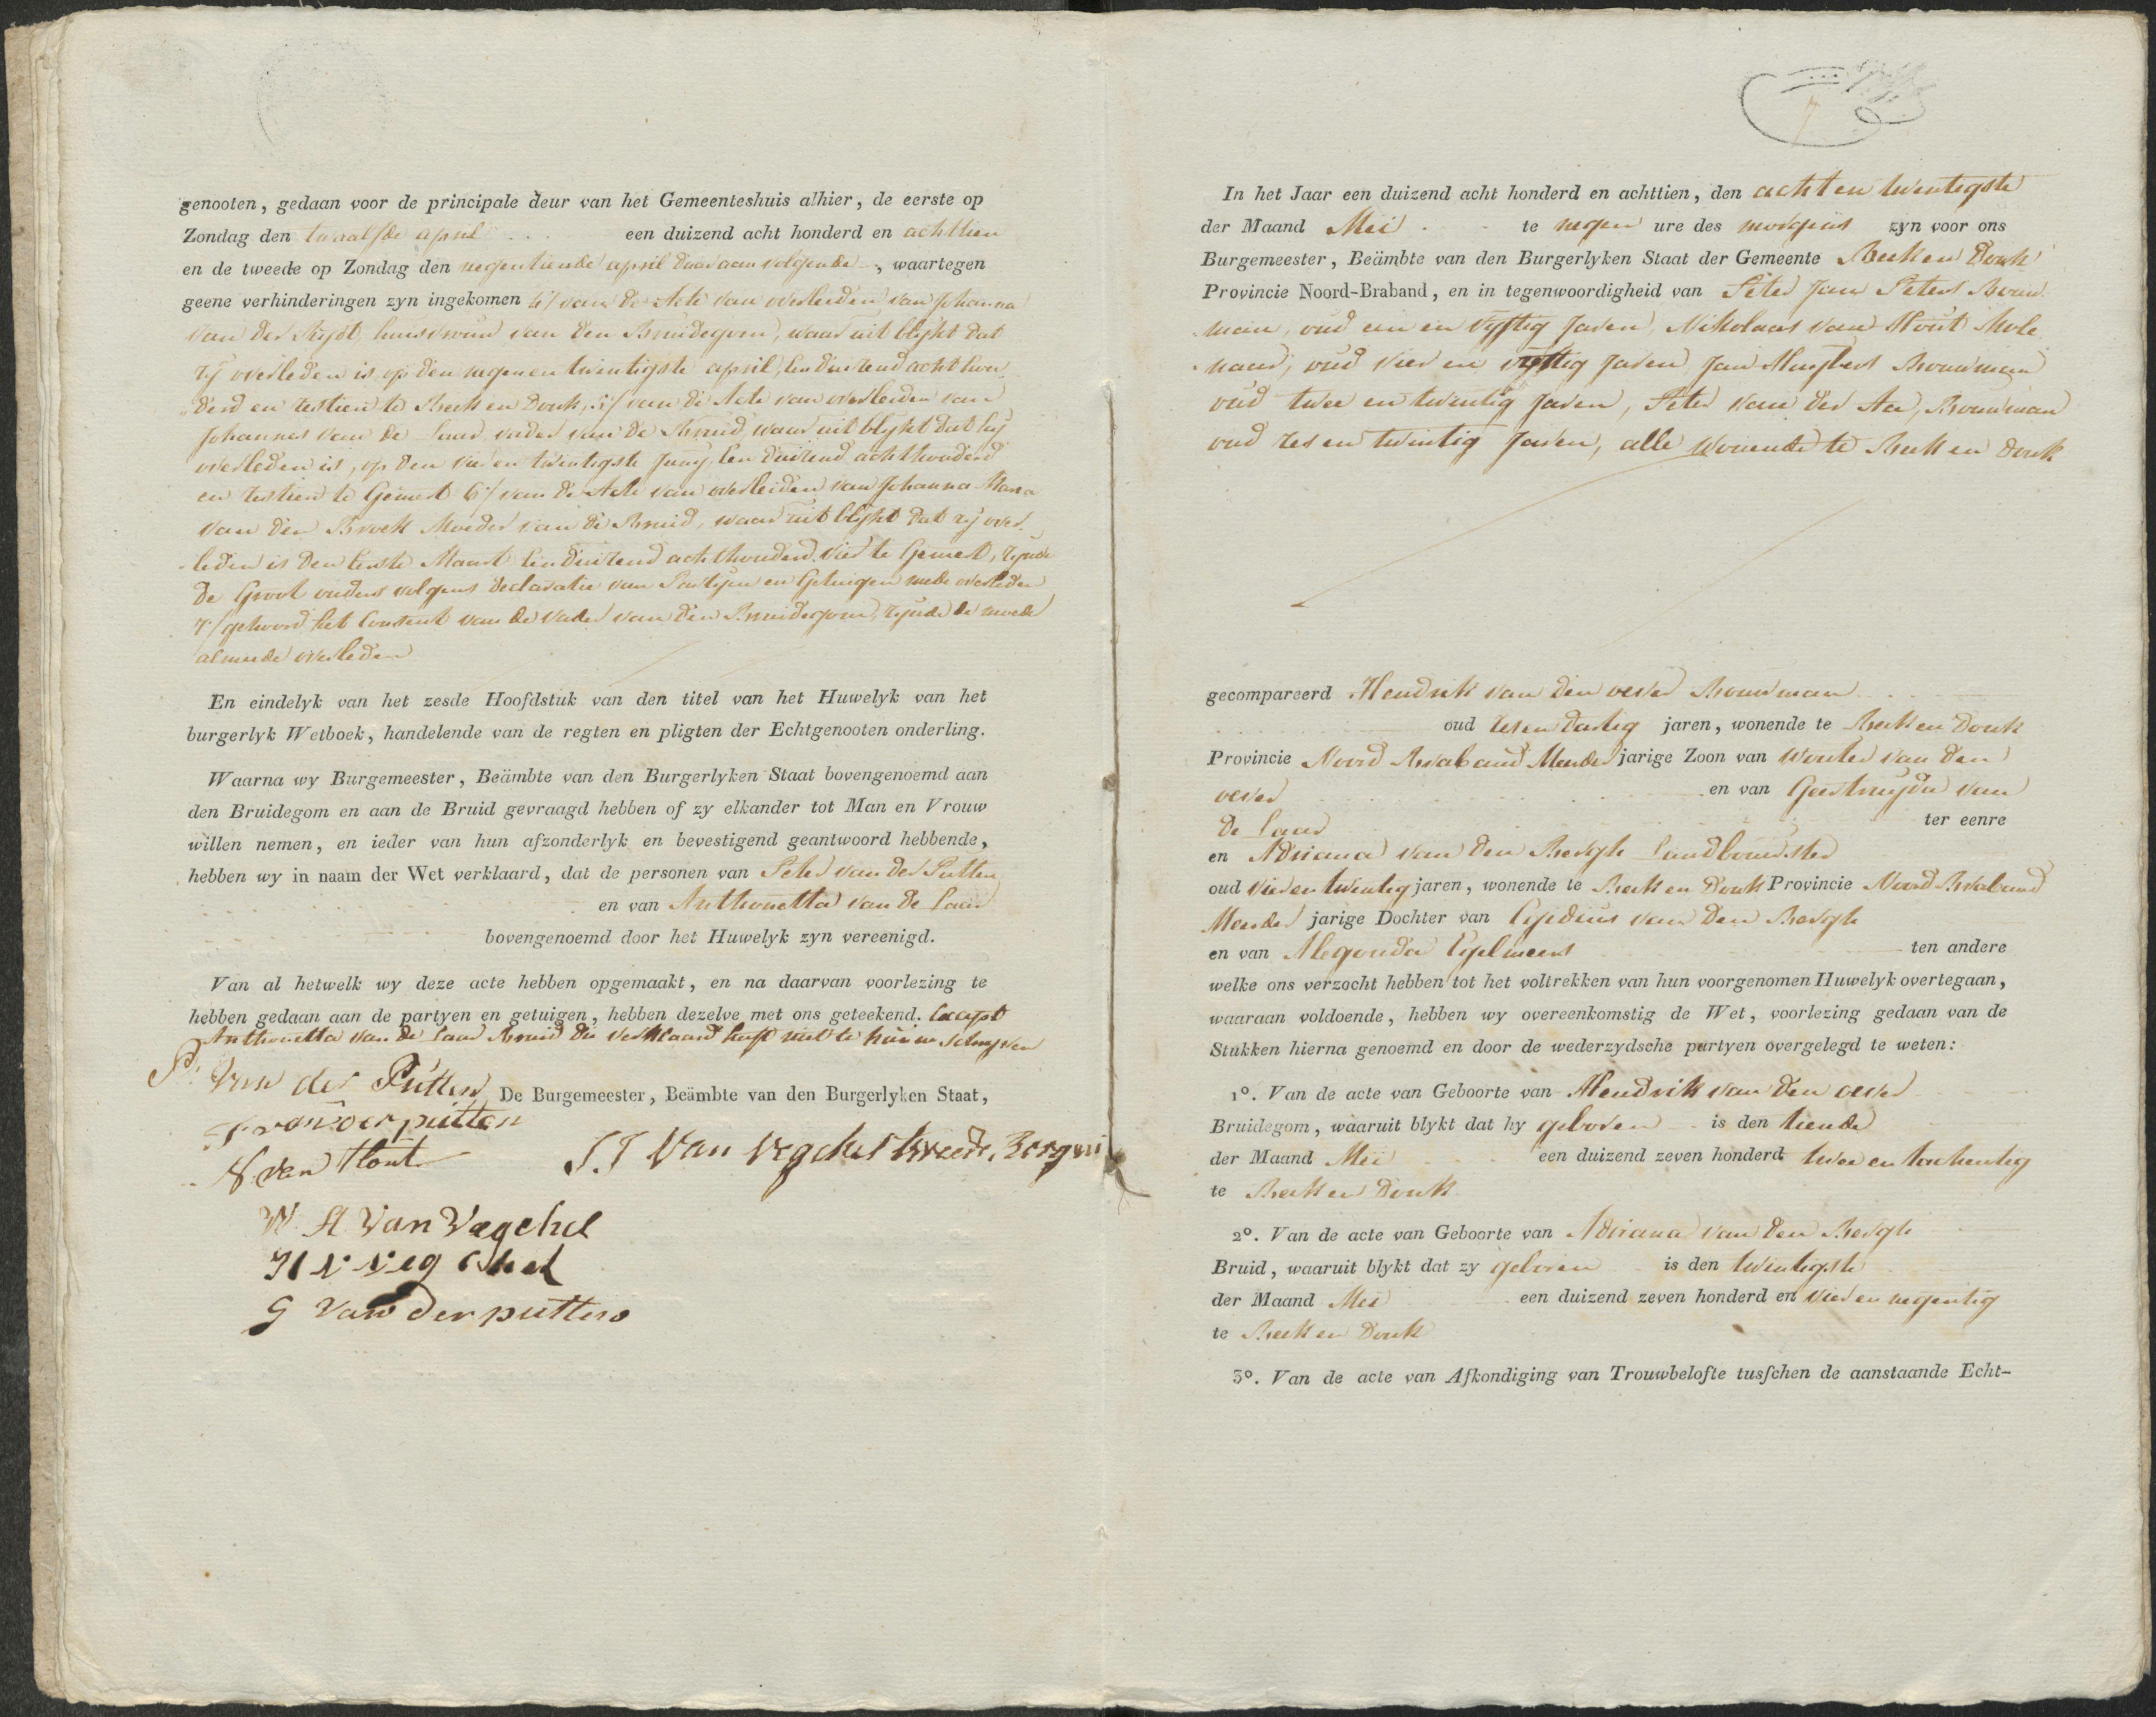 genooten, gedaan voor de principale deur van het Gemeenteshuis alhier, de eerste op
Zondag den twaalfde april een duizend acht honderd en achttien
en de tweede op Zondag den negentiende april daaraanvolgende, waartegen
geene verhinderingen zyn ingekomen 4/ van de Acte van overleiden van Johanna
van der huisvrouw van den Bruidegom, waar uit blijkt dat
zij overleden is op den negenentwintigste april een duizend acht hon
derd en zestien te Beek en Donk, 5/ van de Acte van overleiden van
Johannes van de Laar vader van de Bruid, waar uit blijkt dat hij
overleden is, op den vier en twintigste Juny een duizend achthonderd
en zestien te Gemert 6/ van de Acte van overleiden van Johanna Maria
van den Broek Moeder van de Bruid, waar uit blijkt dat zij over
leden is den eerste Maart een duizend achthonderd vier te Gemert, zijnde
de Groot ouders volgens declaratie van Partijen en Getuigen mede overleden
7/ gehoord het Consent van de vader van den Bruidegom, zijnde de moeder
almede overleden
En eindelyk van het zesde Hoofdstuk van den titel van het Huwelyk van het
burgerlyk Wetboek, handelende van de regten en pligten der Echtgenooten onderling.
Waarna wy Burgemeester, Beämbte van den Burgerlyken Staat bovengenoemd aan
den Bruidegom en aan de Bruid gevraagd hebben of zy elkander tot Man en Vrouw
willen nemen, en ieder van hun afzonderlyk en bevestigend geantwoord hebbende,
hebben wy in naam der Wet verklaard, dat de personen van Peter van der Putten
en van Anthonetta van de Laar
bovengenoemd door het Huwelyk zyn vereenigd.
Van al hetwelk wy deze acte hebben opgemaakt, en na daarvan voorlezing te
hebben gedaan aan de partyen en getuigen, hebben dezelve met ons geteekend. Except
Anthonetta van de Laar Bruid die verklaard heeft niet te kunnen schryven
P: van der Putten
De Burgemeester, Beämbte van den Burgerlyken Staat,
van der putten
N. van Hout
J. J Van Veghel tweede Borgm
W. A. Van Vegchel
H V Veg chel
G van der putten
In het Jaar een duizend acht honderd en achttien, den acht en twintigste
der Maand Meij te negen ure des morgens zyn voor ons
Burgemeester, Beämbte van den Burgerlyken Staat der Gemeente Beek en Donk
Provincie Noord-Braband, en in tegenwoordigheid van Peter Jan Peters Bouw
man, oud een en vyftig Jaren, Nikolaas van Hout Mole
naar, oud vier en vyftig Jaren Jan Bouwman
oud twee en twintig Jaren, Peter van der Aa, Bouwman
oud zes en twintig Jaren, alle wonende te Beek en Donk
gecompareerd Hendrik van den oever Bouwman
oud zes en dartig jaren, wonende te Beek en Donk
Provincie Noord Braband Meerder jarige Zoon van Wouter van den
oever en van Geertruyda van
de Laar ter eenre
en Adriana van den Bergh Landbouwster
oud vier en twintig jaren, wonende te Beek en Donk Provincie Noord Braband
Meerder jarige Dochter van Egidius van den Bergh
en van Alegonda Egelmeers ten andere
welke ons verzocht hebben tot het voltrekken van hun voorgenomen Huwelyk overtegaan,
waaraan voldoende, hebben wy overeenkomstig de Wet, voorlezing gedaan van de
Stukken hierna genoemd en door de wederzydsche partyen overgelegd te weten:
1º. Van de acte van Geboorte van Hendrik van den oever
Bruidegom, waaruit blykt dat hy geboren is den tiende
der Maand Meij een duizend zeven honderd twee en tachentig
te Beek en Donk
2º. Van de acte van Geboorte van Adriana van den Bergh
Bruid, waaruit blykt dat zy geboren is den twintigste
der Maand Meij een duizend zeven honderd en vier en negentig
te Beek en Donk
3º. Van de acte van Afkondiging van Trouwbelofte tusschen de aanstaande Echt-